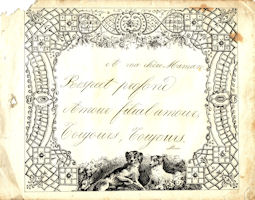 A ma chère Maman,
Respect profond
Amour filial amour,
Toujours, Toujours.